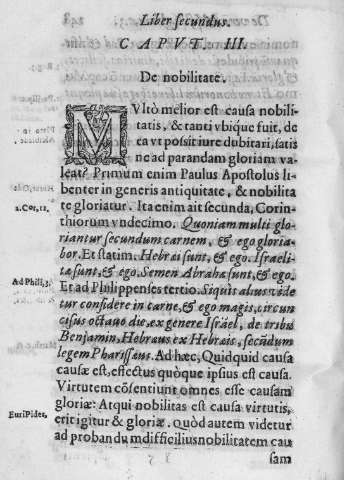 Liber secundus.
CAPVT. III.
De nobilitate.
MVltò melior est causa nobili-
tatis, & tanti vbique fuit, de
ea vt possit iure dubitari, satis
ne ad parandam gloriam va-
leat? Primum enim Paulus Apostolus li-
benter in generis antiquitate, & nobilita
te gloriatur. Ita enim ait secunda, Corin-
2. Cor. 11.
thiorum vndecimo. Quoniam multi glo-
riantur secundum carnem, & ego gloria-
bor. Et statim. Hebræi sunt, & ego. Israeli-
tæ sunt, & ego. Semen Abrahæ sunt, & ego.
Ad Phili. 3.
Et ad Philippenses tertio. Siquis alius vide
tur confidere in carne, & ego magis, circun
cisus octauo die, ex genere Israël, de tribu
Benjamin, Hebræus ex Hebræis, secūdum
legem Pharisæus. Ad hæc, Quidquid causa
causæ est, effectus quòque ipsius est causa.
Virtutem cōsentiunt omnes esse causam
gloriæ: Atqui nobilitas est causa virtutis,
Euripides,
erit igitur & gloriæ. Quòd autem videtur
ad probandum difficilius nobilitatem cau
sam